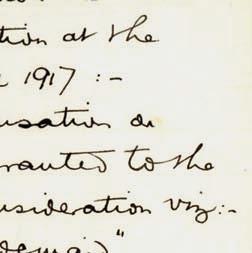 tion at the
1917 :-
usation on
ranted to the
nsideration viz:-